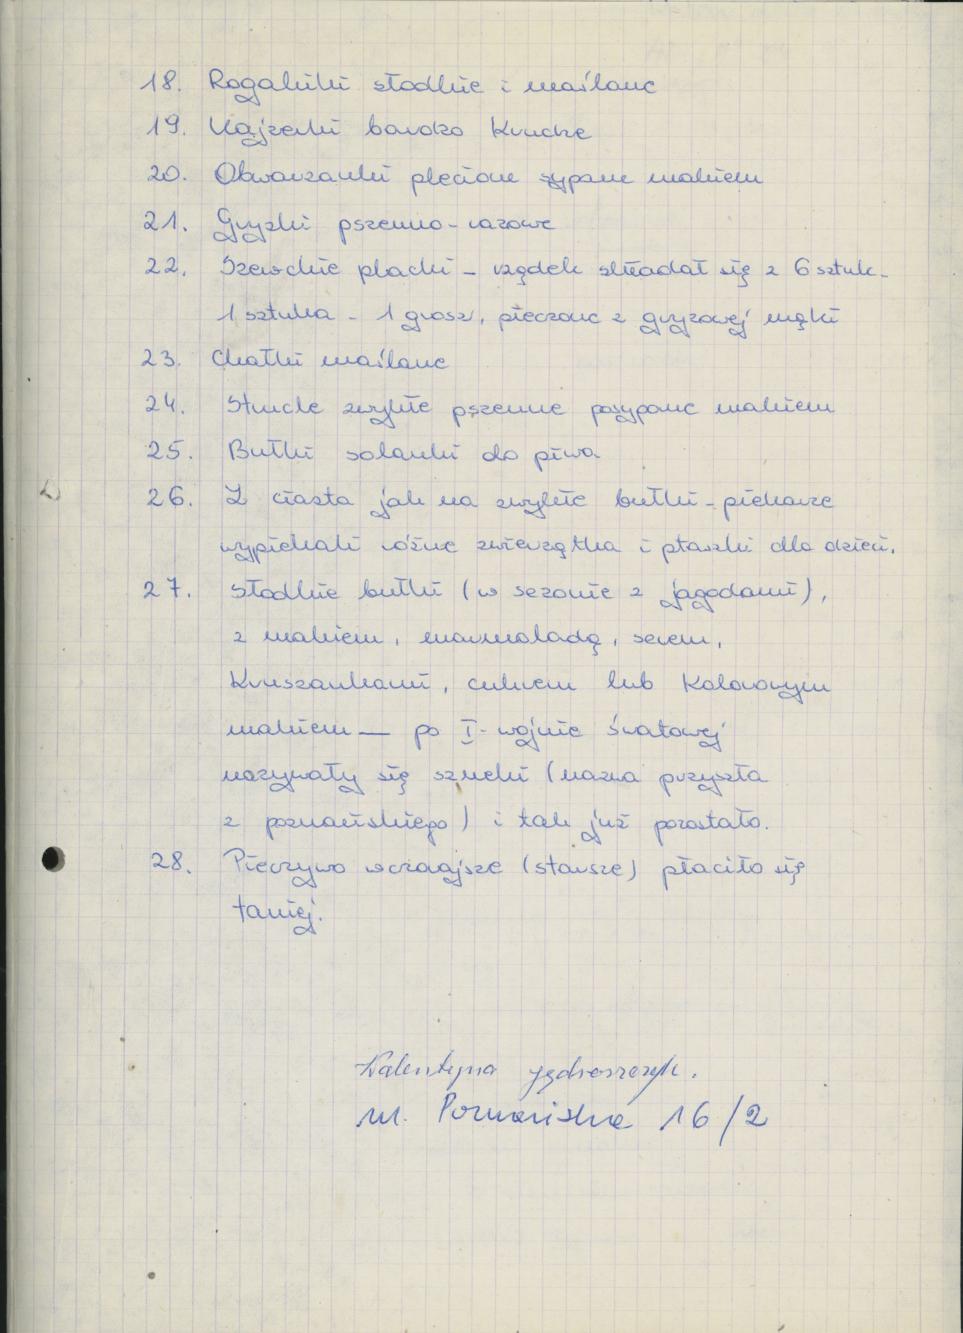 18. Rogaliki słodkie i maślane
19. Kajzerki bardzo kruche
20. Obwarzanki plecione sypane makiem
21. Gryzki pszenno-razowe
22. Szewckie placki - rządek składał się z 6 sztuk -
1 sztuka - 1 grosz, pieczone z gryzowej mąki
23. Chałki maślane
24. Strucle zwykłe pszenne posypane makiem
25. Bułki solanki do piwa
26. Z ciasta jak na zwykłe bułki - piekarze
wypiekali różne zwierzątka i ptaszki dla dzieci.
27. Słodkie bułki (w sezonie z jagodami),
z makiem, marmoladą, serem,
kruszankami, cukrem lub kolorowym
makiem — po I- wojnie światowej
nazywały się szneki (nazwa przyszła
z poznańskiego) i tak już pozostało.
28. Pieczywo wczorajsze (starsze) płaciło się
taniej.
Walentyna Jędroszczyk.
ul. Poznańska 16/2